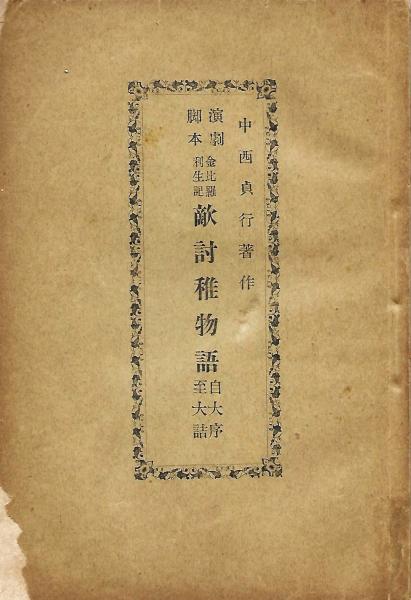 中西貞行著作
演劇
脚本
金比羅
利生記
敵討稚物語
自大序
至大詰